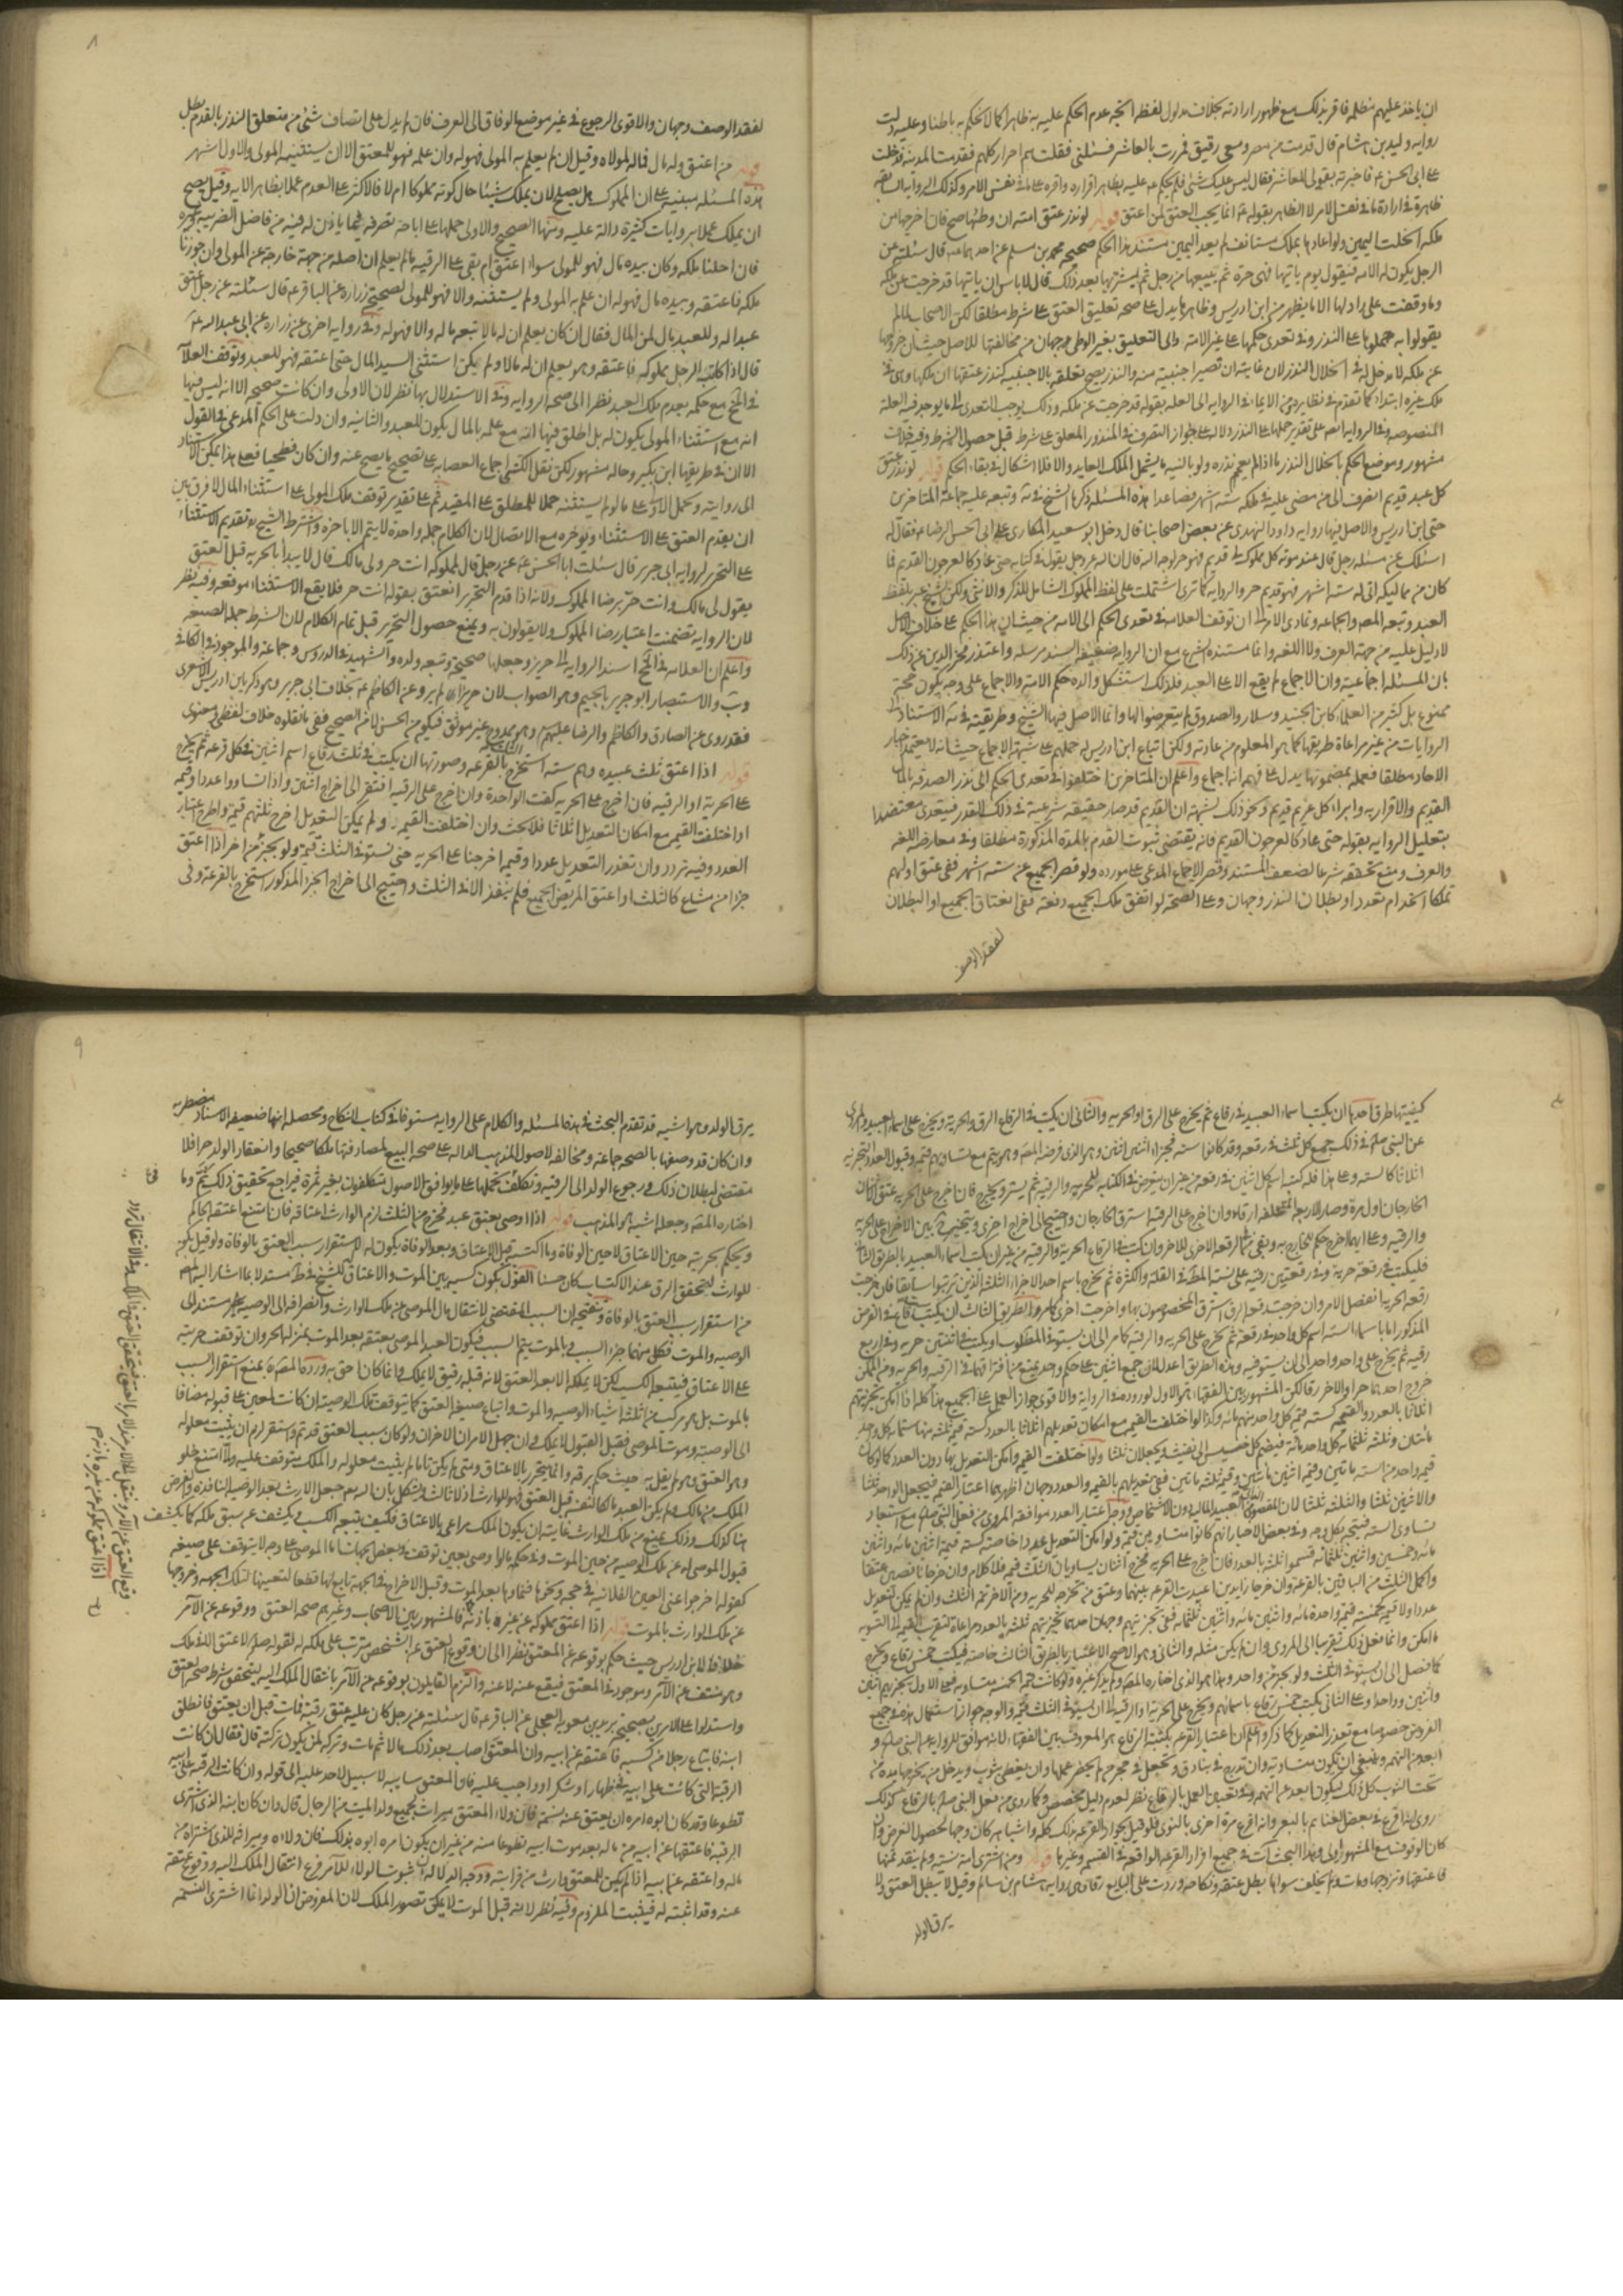 ان ياخذ عليهم مظلمه فاقر بذلك مع ظهور ارادته بخلاف مدلول لفظه اتجه عدم الحكم عليه به ظاهرا كما لا يحكم به باطنا وعليه دلت
رواية وليد بن هشام قال قدمت من مصر ومعي رقيق فمررت بالعاشر فسئلني فقلت هم احرار كلهم فقدمت المدينة فدخلت
على ابي الحسن ع فاخبرته بقولي للعاشر فقال ليس عليك شئ فلم يحكم ع عليه بظاهر اقراره واقره على ما في نفس الامر وكذلك الرواية السابقه
ظاهرة في ارادة ما في نفس الامر لا الظاهر بقوله ع انما يجب العتق لمن اعتق قوله لو نذر عتق امته ان وطئها صح فان اخرجها من
ملكه انحلت اليمين ولو اعادها بملك مستانف لم يعد اليمين مستند هذا الحكم صحيحة محمد بن مسلم عن احدهما ع قال سئلته عن
الرجل يكون له الامه فيقول يوم ياتيها فهى حرة ثم يبيعها من رجل ثم يشتريها بعد ذلك قال لا باس بان ياتيها قد خرجت عن ملكه
وما وقفت على راد لها الا ما يظهر من ابن ادريس وظاهرها يدل على صحة تعليق العتق على شرط مطلقا لكن الاصحاب لما لم
يقولوا به حملوها على النذر وفي تعدى حكمها على غير الامه والى التعليق بغير الوطى وجهان من مخالفتها للاصل حيث ان خروجها
عن ملكه لا مدخل له في انحلال النذر لان غايته ان تصير اجنبية منه والنذر يصح تعلقه بالاجنبيه كنذر عتقها ان ملكها وهى في
ملك غيره ابتداء كما تقدم في نظايره ومن الايماء في الرواية الى العله بقوله قد خرجت عن ملكه وذلك يوجب التعدى الى ما يوجد فيه العلة
المنصوصه وفي الرواية ايضا على تقدير حملها على النذر دلالة على جواز التصرف في المنذور المعلق على شرط قبل حصول الشرط وفيه خلاف
مشهور وموضع الحكم بانحلال النذر ما اذا لم يعمم نذره ولو بالنيه بما يشمل الملك العايد والا فلا اشكال في بقاء الحكم قوله لو نذر عتق
كل عبد قديم انصرف الى من مضى عليه في ملكه ستة اشهر فصاعدا هذه المسئله ذكرها الشيخ في يه وتبعه عليه جماعة المتاخرين
حتى ابن ادريس والاصل فيها رواية داود النهدى عن بعض اصحابنا قال دخل ابو سعيد المكارى على ابى الحسن الرضا ع فقال له
اسئلك عن مسئله رجل قال عند موته كل مملوك لى قديم فهو حر لوجه الله قال ان الله عز وجل يقول في كتابه حتى عاد كالعرجون القديم فما
كان من مماليكه اتى له ستة اشهر فهو قديم حر والرواية كما ترى اشتملت على لفظ المملوك الشامل للذكر والانثى ولكن الشيخ عبر بلفظ
العبد وتبعه المص والجماعه وتمادى الامر الى ان توقف العلامه في تعدى الحكم الى الامه من حيث ان هذا الحكم على خلاف الاصل
لا دليل عليه من جهة العرف ولا اللغه وانما مستنده الشرع مع ان الرواية ضعيفه السند مرسله واعتذر فخر الدين عن ذلك
بان المسئله اجماعيه وان الاجماع لم يقع الا على العبد فلذلك استشكل والده حكم الامه والاجماع على وجه يكون حجة
ممنوع بل كثير من العلماء كابن الجنيد وسلار والصدوق لم يتعرضوا لها وانما الاصل فيها الشيخ وطريقته في يه الاستناد الى
الروايات من غير مراعاة طريقها كما هو المعلوم من عادته ولكن اتباع ابن ادريس له حملهم على شبهة الاجماع حيث انه لا يعتمد اخبار
الاحاد مطلقا فعمله بمضمونها يدل على فهمه انها اجماع واعلم ان المتاخرين اختلفوا في تعدى الحكم الى نذر الصدقه بالمال
القديم والاقرار به وابراء كل غريم قديم ونحو ذلك لشبهة ان القديم قد صار حقيقه شرعية في ذلك القدر فيتعدى معتضدا
بتعليل الرواية بقوله حتى عاد كالعرجون القديم فانه يقتضى ثبوت القدم بالمدة المذكورة مطلقا وفي معارضه اللغه
والعرف ومنع تحققه شرعا لضعف المستند وقصر الاجماع المدعى على مورده ولو قصر الجميع عن ستة اشهر ففى عتق اولهم
تملكا اتحد ام تعدد او بطلان النذر وجهان وعلى الصحة لو اتفق ملك الجميع دفعة ففى انعتاق الجميع او البطلان
لفقد الوصف
٨
لفقد الوصف وجهان والاقوى الرجوع في غير موضع الوفاق الى العرف فان لم يدل على اتصاف شئ من متعلق النذر بالقدم بطل
قوله من اعتق وله مال فماله لمولاه وقيل ان لم يعلم به المولى فهو له وان علمه فهو للمعتق الا ان يستثنيه المولى والاول اشهر
هذه المسئله مبنيه على ان المملوك هل يصلح لان يملك شيئا حال كونه مملوكا ام لا فالاكثر على العدم عملا بظاهر الايه وقيل يصح
ان يملك عملا بروايات كثيرة دالة عليه ومنها الصحيح والاولى حملها على اباحة تصرفه فيما ياذن له فيه من فاضل الضريبه وغيره
فان احلنا ملكه وكان بيده مال فهو للمولى سواء اعتق ام بقى على الرقيه ما لم يعلم ان اصله من جهة خارجة عن المولى وان جوزنا
ملكه فاعتقه وبيده مال فهو له ان علم به المولى ولم يستثنه والا فهو للمولى لصحيحة زراره عن الباقر ع قال سئلته عن رجل اعتق
عبدا له وللعبد مال لمن المال فقال ان كان يعلم ان له مالا تبعه ماله والا فهو له وفي رواية اخرى عن زراره عن ابى عبد الله ع
قال اذا كاتب الرجل مملوكه فاعتقه وهو يعلم ان له مالا ولم يكن استثنى السيد المال حتى اعتقه فهو للعبد وتوقف العلامه
في المخ مع حكمه بعدم ملك العبد نظرا الى صحة الرواية وفي الاستدلال بها نظر لان الاولى وان كانت صحيحه الا انه ليس فيها
انه مع استثناء المولى يكون له بل اطلق فيها انه مع علمه بالمال يكون للعبد والثانيه وان دلت على الحكم المدعى في القول
الا ان في طريقها ابن بكير وحاله مشهور لكن نقل الكشى اجماع العصابه على تصحيح ما يصح عنه وان كان فطحيا فعلى هذا يمكن الاستناد
الى روايته وتحمل الاولى على ما لو لم يستثنه حملا للمطلق على المقيد ثم على تقدير توقف ملك المولى على استثناء المال لا فرق بين
ان يقدم العتق على الاستثناء ويؤخره مع الاتصال لان الكلام جمله واحدة لا يتم الا باخره واشترط الشيخ ره تقديم الاستثناء
على التحرير لرواية ابى جرير قال سئلت ابا الحسن ع عن رجل قال لمملوكه انت حر ولى مالك قال لا يبدأ بالحرية قبل العتق
يقول لى مالك وانت حر برضا المملوك ولانه اذا قدم التحرير انعتق بقوله انت حر فلا يقع الاستثناء موقعه وفيه نظر
لان الرواية تضمنت اعتبار رضا المملوك ولا يقولون به ونمنع حصول التحرير قبل تمام الكلام لان الشرط جملة الصيغه
واعلم ان العلامه في المخ اسند الرواية الى حريز وجعلها صحيحة وتبعه ولده والشهيد في الدروس وجماعة والموجود في الكافى
ويب والاستبصار ابو جرير بالجيم وهو الصواب لان حريزا لم يرو عن الكاظم ع بخلاف ابى جرير وهو زكريا بن ادريس الاشعرى
فقد روى عن الصادق والكاظم والرضا عليهم وهو ممدوح غير موثق فيكون من الحسن لا من الصحيح ففى ما نقلوه خلاف لفظى ومعنوى
قوله اذا اعتق ثلث عبيده وهم سته استخرج الثلث بالقرعه وصورتها ان يكتب في ثلث رقاع اسم اثنين في كل قرعه ثم يخرج
على الحرية او الرقيه فان اخرج على الحرية كفت الواحدة وان اخرج على الرقيه افتقر الى اخراج اثنين واذا تساووا عددا وقيمه
او اختلفت القيم مع امكان التعديل اثلاثا فلا بحث وان اختلفت القيمه ولم يمكن التعديل اخرج ثلثهم قيمة واطرح اعتبار
العدد وفيه تردد وان تعذر التعديل عددا وقيمه اخرجنا على الحرية حتى يستوفى الثلث قيمة ولو بجزء من اخر اذا اعتق
جزءا من مشاع كالثلث او اعتق المريض الجميع فلم ينفذ الا في الثلث واحتيج الى اخراج الجزء المذكور استخرج بالقرعه وفى
كيفيتها طرق احدها ان يكتب اسماء العبيد في رقاع ثم يخرج على الرق او الحريه والثانى ان يكتب في الرقاع الرق والحرية ويخرج على اسماء العبيد والمروى
عن النبى صلم في ذلك جمع كل ثلث في رقعه وقد كانوا سته فجزاهم اثنين اثنين وهو الذى فرضه المص وهو يتم مع تساويهم قيمه وقبول العدد للتجزيه
اثلاثا كالسته وعلى هذا فله كتبة اسم كل اثنين في رقعه من غير ان يتعرض في الكتابه للحرية والرقيه ثم يستر ويخرج فان اخرج على الحرية عتق الاثنان
الخارجان اول مرة وصار الاربعة المتخلفه ارقاء وان اخرج على الرقيه استرق الخارجان واحتيج الى اخراج اخرى ويتخير ح بين الاخراج على الحرية
والرقيه وعلى ايهما اخرج حكم للخارج به وبقى حكم الرقعه الاخرى للاخر
فليكتب في رقعة حرية وفي رقعتين رقيه على نسبة المط في القلة والكثرة ثم يخرج باسم احد الاجزاء الثلثه الذين ترتبوا سابقا فان خرجت
رقعة الحرية انفصل الامر وان خرجت رقعه الرق استرق المخصوصون بها واخرجت اخرى كما مر والطريق الثالث ان يكتب ستة رقاع في الفرض
المذكور اما باسماء السته اسم كل واحد في رقعة ثم يخرج على الحرية والرقيه كما مر الى ان يستوفى المطلوب او يكتب في اثنتين حريه وفي اربع
رقيه ثم يخرج على واحد واحد الى ان يستوفيه وهذه الطريق اعدل لان جمع اثنين على حكم واحد يمنع من افتراقهما في الرقيه والحريه ومن الممكن
خروج احدهما حرا والاخر رقا لكن المشهور بين الفقهاء هو الاول لوروده في الرواية والاقوى جواز العمل على الجميع هذا كله اذا امكن تجزيتهم
اثلاثا بالعدد والقيمه كسته قيمة كل واحد منهم مائه وكذا لو اختلفت القيم مع امكان تعديلهم اثلاثا بالعدد كسته قيمة ثلثه منها ستمايه كل واحد
مائتان وثلثه ثلثمايه كل واحد مائه فيضم كل خسيس الى نفيس ويجعلان ثلثا ولو اختلفت القيمه وامكن التعديل بها دون العدد كما لو كان
قيمه واحد من السته مائتين وقيمه اثنين مائتين وقيمه ثلثه مائتين ففى تعديلهم بالقيمه والعدد وجهان اظهرهما اعتبار القيمه فيجعل الواحد ثلثا
والاثنين ثلثا والثلثه ثلثا لان المقصود الذاتى من العبيد الماليه دون الاشخاص ووجه اعتبار العدد موافقه المروى من فعل النبى صلم مع استبعاد
تساوى السته قيمة بكل وجه وفي بعض الاخبار انهم كانوا متساويين قيمة ولو امكن التعديل عددا خاصة كسته قيمة اثنين مائه واثنين
مائه وخمسين واثنين ثلثمائه قسموا ثلثه بالعدد فان اخرج على الحريه فخرج اثنان يساويان الثلث قيمه فلا كلام وان خرجا ناقصين عتقا
واكمل الثلث من الباقين بالقرعه وان خرجا زايدين اعيدت القرعه بينهما وعتق من تخرجه للحريه ومن الاخر تتمه الثلث وان لم يكن التعديل
عددا ولا قيمه كخمسة قيمة واحدة مائه واثنين مائه واثنين ثلثمائه ففى تجزيتهم وجهان احدهما تجزيتهم ثلثه بالعدد مراعاة لتقريب القيمه الى التسويه
ما امكن وانما فعل ذلك تقريبا الى المروى وان لم يكن مثله والثانى وهو الاصح الاعتبار بالطريق الثالث خاصه فيكتب خمس رقاع ويخرج
كما فصل الى ان يستوفى الثلث ولو بجزء من واحد وهذا هو الذى اختاره المص ولم يذكر غيره ولو كانت قيمة الخمسه متساويه فعلى الاول يجزيهم اثنين
واثنين وواحدا وعلى الثانى يكتب خمس رقاع باسمائهم ويخرج على الحرية او الرقيه الى ان يستوفى الثلث قيمة والوجه جواز استعمال هذه في جميع
الفروض خصوصا مع تعذر التعديل كما ذكر واعلم ان اعتبار القرعه بكتبة الرقاع هو المعروف بين الفقهاء لانه موافق للرواية عن النبى صلم و
ابعد من التهمه وينبغى ان يكون متساويه وان تدرج في بنادق وتجعل في حجر من لم يحضر عملها وان يغطى بثوب ويدخل من يخرجها يده من
تحت الثوب كل ذلك ليكون ابعد عن التهمه وفي تعيين العمل بالرقاع نظر لعدم دليل مخصص وكما روى من فعل النبى صلم بالرقاع كذلك
روى انه اقرع في بعض الغنايم بالبعر وانه اقرع مرة اخرى بالنوى فلو قيل بجواز القرعه بذلك كله واشباهه كان وجها لحصول الغرض وان
كان الوقوف مع المشهور اولى وهذا البحث ات في جميع افراد القرعه الواقعه في القسمه وغيرها قوله ومن اشترى امة نسيئة ولم ينقد ثمنها
فاعتقها وتزوجها ومات ولم يخلف سواها بطل عتقه ونكاحه وردت على البايع رقا وهى رواية هشام بن سالم وقيل لا يبطل العتق ولا
يرق الولد
٩
يرق الولد وهو اشبه قد تقدم البحث في هذه المسئله والكلام على الرواية مستوفا في كتاب النكاح ومحصله انها ضعيفه الاسناد مضطربه
وان كان قد وصفها بالصحه جماعة ومخالفه لاصول المذهب الداله على صحة البيع لمصادفتها ملكا صحيحا وانعقاد الولد حرا فلا
مقتضى لبطلان ذلك ورجوع الولد الى الرقيه وتكلف حملها على ما يوافق الاصول متكلفون بغير ثمرة فيراجع تحقيق ذلك ثم وما
اختاره المص وجعله اشبه هو المذهب قوله اذا اوصى بعتق عبد فخرج من الثلث لزم الوارث اعتاقه فان امتنع اعتقه الحاكم
ويحكم بحريته حين الاعتاق لا حين الوفاة وما اكتسبه قبل الاعتاق وبعد الوفاة يكون له لاستقرار سبب العتق بالوفاة ولو قيل يكون
للوارث لتحقق الرق عند الاكتساب كان حسنا القول بكون كسبه بين الموت والاعتاق له للشيخ في ط مستدلا بما اشار اليه المص
من استقرار سبب العتق بالوفاة وتنقيحه ان السبب المقتضى لانتقال مال الموصى عن ملك الوارث وانصرافه الى الوصيه هو مستند الى
الوصيه والموت فكل منهما جزء السبب وبالموت يتم السبب فيكون العبد الموصى بعتقه بعد الموت بمنزلة الحر وان توقفت حريته
على الاعتاق فيتبعه الكسب لكن لا يملكه الا بعد العتق لانه قبله رقيق لا يملك وانما كان احق به ورده المص ره بمنع استقرار السبب
بالموت بل هو مركب من ثلثه اشياء الوصيه والموت واتباع صيغه العتق كما يتوقف ملك الوصيه ان كانت لمعين على قبوله مضافا
الى الوصيه وموت الموصى فقبل القبول لا يملك وان حصل الامران الاخران ولو كان سبب العتق قد تم واستقر لزم ان يثبت معلوله
وهو العتق وهو لم يقل به حيث حكم برقه وانما يتحرر بالاعتاق ومتى لم يكن تاما لم يثبت معلوله والملك متوقف عليه ولما امتنع خلو
الملك من مالك ولم يكن العبد مالكا لنفسه قبل العتق فهو للوارث اذ لا ثالث ويشكل بان الله تع جعل الارث بعد الوصيه النافذه والفرض
هنا كذلك وذلك يمنع من ملك الوارث غايته ان يكون الملك مراعى بالاعتاق فكيف يتبعه الكسب ويكشف عن سبق ملكه كما يكشف
قبول الموصى له عن ملك الوصيه من حين الموت وفي حكمه ما لو اوصى بعين توقف وبعض جهاتها اما الموصى على وجه لا يتوقف على صيغه
كقوله اخرجوا عنى العين الفلانيه في حجه ونحوها فنماؤها بعد الموت وقبل الاخراج في الجهة تابع لها قطعا لتعينها لتلك الجهه وخروجها
عن ملك الوارث بالموت قوله اذا اعتق مملوكه عن غيره باذنه فالمشهور بين الاصحاب وغيرهم صحه العتق ووقوعه عن الآمر
خلافا لابن ادريس حيث حكم بوقوعه عن المعتق نظرا الى ان وقوع العتق عن الشخص مترتب على ملكه له لقوله صلم لا عتق الا في ملك
وهو منتف عن الآمر وموجود في المعتق فيقع عنه لا عنه والتزم القايلون بوقوعه عن الآمر بانتقال الملك اليه ليتحقق شرط صحه العتق
واستدلوا على الامرين بصحيحة بريد بن معويه العجلى عن الباقر ع قال سئلته عن رجل كان عليه عتق رقبه فمات قبل ان يعتق فانطلق
ابنه فابتاع رجلا من كسبه فاعتقه عن ابيه وان المعتق اصاب بعد ذلك مالا ثم مات وتركه لمن يكون تركته قال فقال ان كانت
الرقبة التى كانت على ابيه في ظهار او شكر او واجب عليه فان المعتق سايبه لا سبيل لاحد عليه الى قوله وان كانت الرقبه على ابيه
تطوعا وقد كان ابوه امره ان يعتق عنه نسمة فان ولاء المعتق ميراث لجميع ولد الميت من الرجال قال وان كان ابنه الذى اشترى
الرقبه فاعتقها عن ابيه من ماله بعد موت ابيه تطوعا منه من غير ان يكون امره ابوه بذلك فان ولاءه وميراثه للذى اشتراه من
ماله واعتقه عن ابيه اذا لم يكن للمعتق وارث من قرابته ووجه الدلالة ان ثبوت الولاء للآمر فرع انتقال الملك اليه ووقوع عتقه
عنه وقد اثبته له فيثبت الملزوم وفيه نظر لانه قبل الموت لا يمكن تصور الملك لان المفروض ان الولد انما اشترى النسمه
اذا اعتق مملوكه عن غيره باذنه
وقع العتق عن الآمر وينتقل الملك الى الآمر عند الامر بالعتق فيتحقق العتق في الملك وفي الانتقال تردد